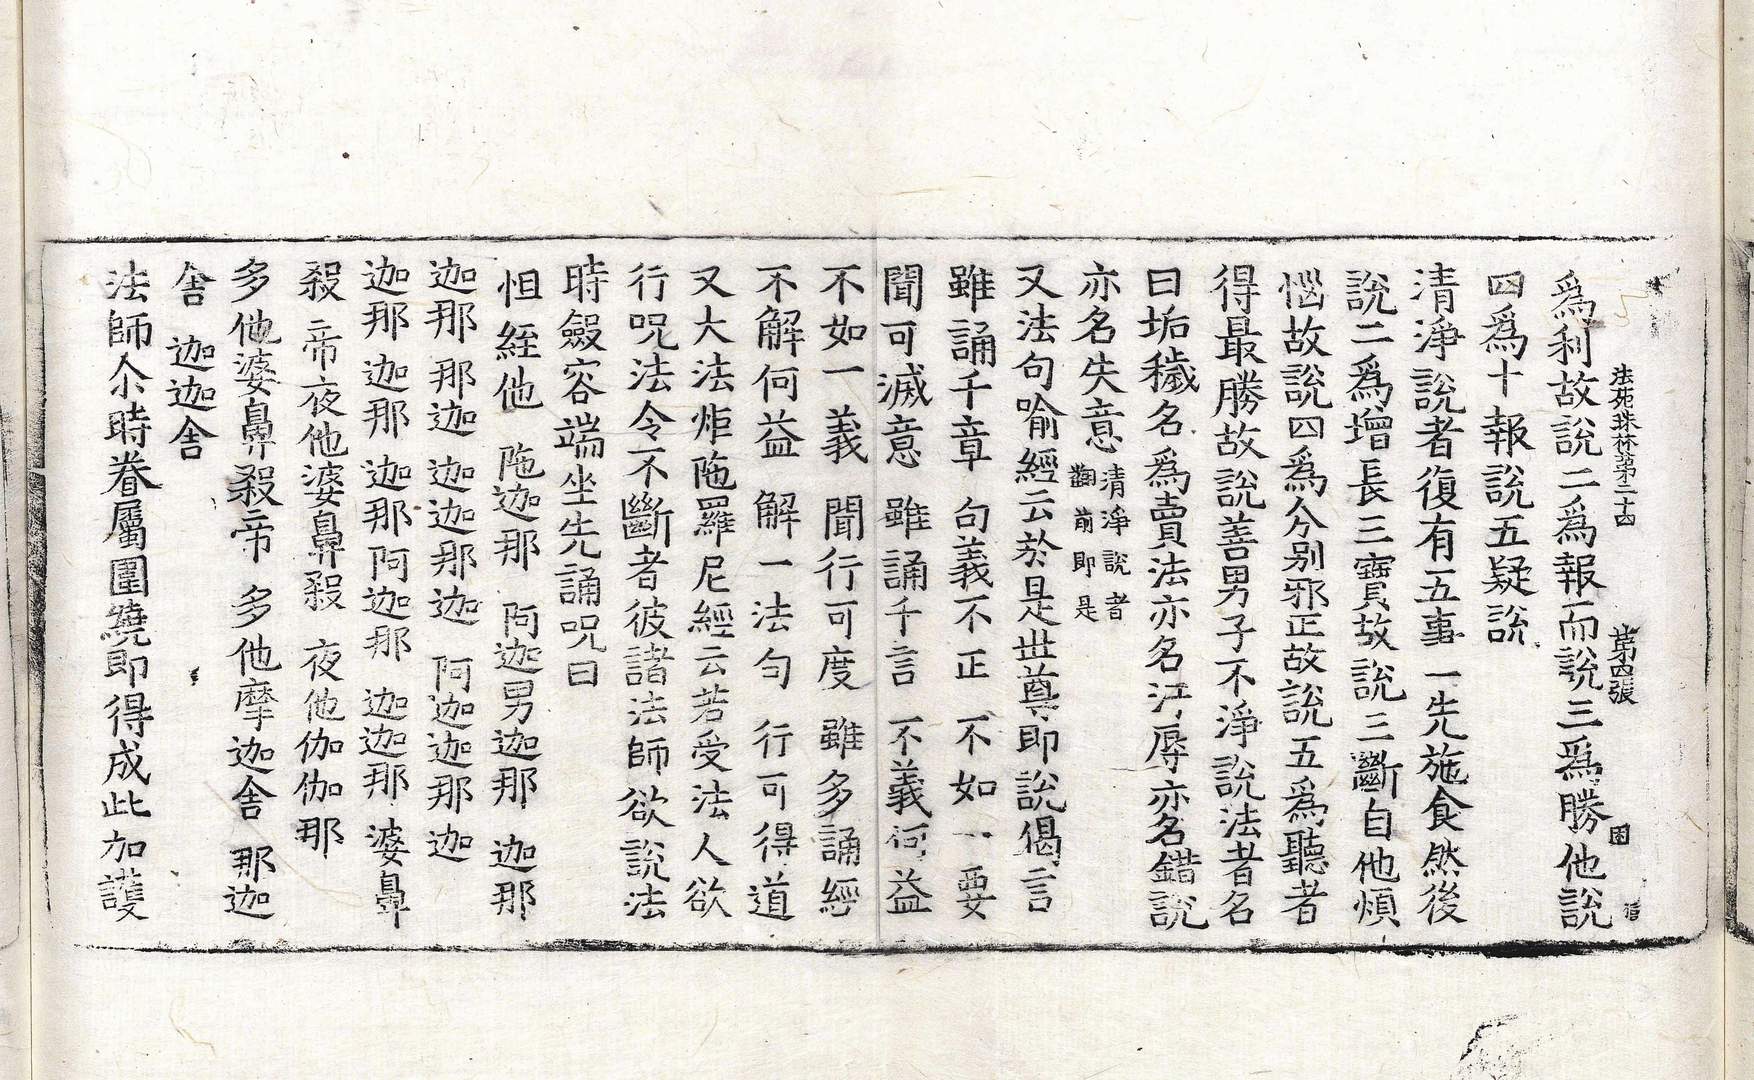 法苑珠林第二十四　第四張　囷
爲利故說二爲報而說三爲勝他說
四爲十報說五疑說
清淨說者復有五事一先施食然後
說二爲增長三寶故說三斷自他煩
惱故說四爲分别邪正故說五爲聽者
得最勝故說善男子不淨說法者名
曰垢穢名爲賣法亦名汙辱亦名錯說
亦名失意清淨說者翻前即是
又法句喻經云於是世尊即說偈言
雖誦千章　句義不正　不如一要
聞可滅意　雖誦千言　不義何益
不如一義　聞行可度　雖多誦經
不解何益　解一法句　行可得道
又大法炬陁羅尼經云若受法人欲
行呪法令不斷者彼諸法師欲說法
時斂容端坐先誦呪曰
怛絰他　陁迦那　阿迦男迦那　迦那
迦那　那迦　迦迦那迦　阿迦迦那迦
迦那　迦那　迦那阿迦那　迦迦那　婆鼻
殺　帝夜他婆鼻殺　夜他伽伽那
多他婆鼻殺帝　多他摩迦舍　那迦
舍　迦迦舍
法師尒時眷屬圍繞即得成此加護